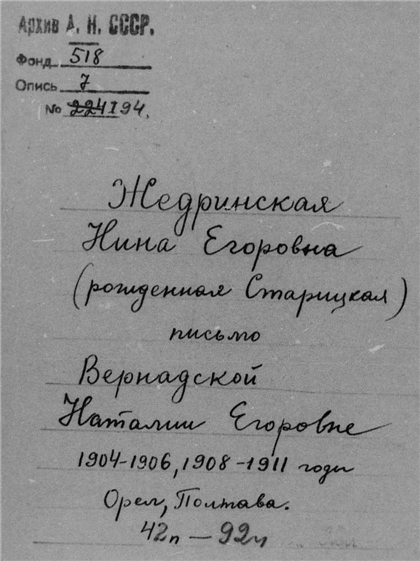 Архив А. Н. СССР.
Фонд 518
Опись 7
№ 94.
Жедринская
Нина Егоровна
(рожденная Старицкая)
письмо
Вернадской
Наталии Егоровне
1904-1906, 1908-1911 годы
Орел, Полтава.
42п — 92л